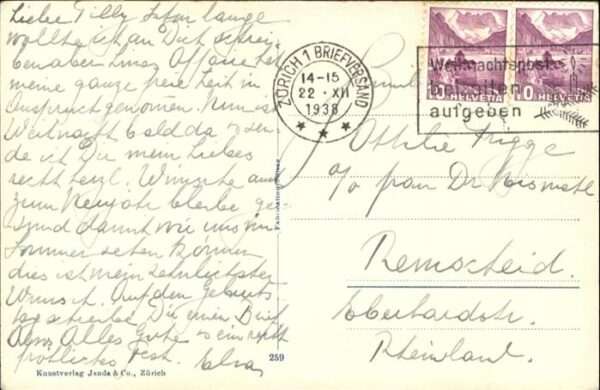 Liebe Tilly Schon lange
wollte ich an Dich schrei-
ben aber
meine ganze freie Zeit in
Anspruch genommen. Nun ist
Weihnacht bald da sen-
de ich Dir mein Liebes
recht herzl. Wünsche auch
zum Neujahr bleibe ge-
sund damit wir uns im
Sommer sehen können
dies ist mein sehnlichster
Wunsch. Auf den Geburts-
tag schreibe Dir einen Brief
Also Alles Gute & ein recht
fröhliches Fest. Elsa
Kunstverlag Jenda & Co., Zürich
259
ZÜRICH 1 BRIEFVERSAND
14-15
22.XII
1938
Weihnachtspost
bei Zeiten
aufgeben
10 HELVETIA
10 HELVETIA
Ottilie
c/o Frau Dr
Remscheid.
Eberhardstr.
Rheinland.